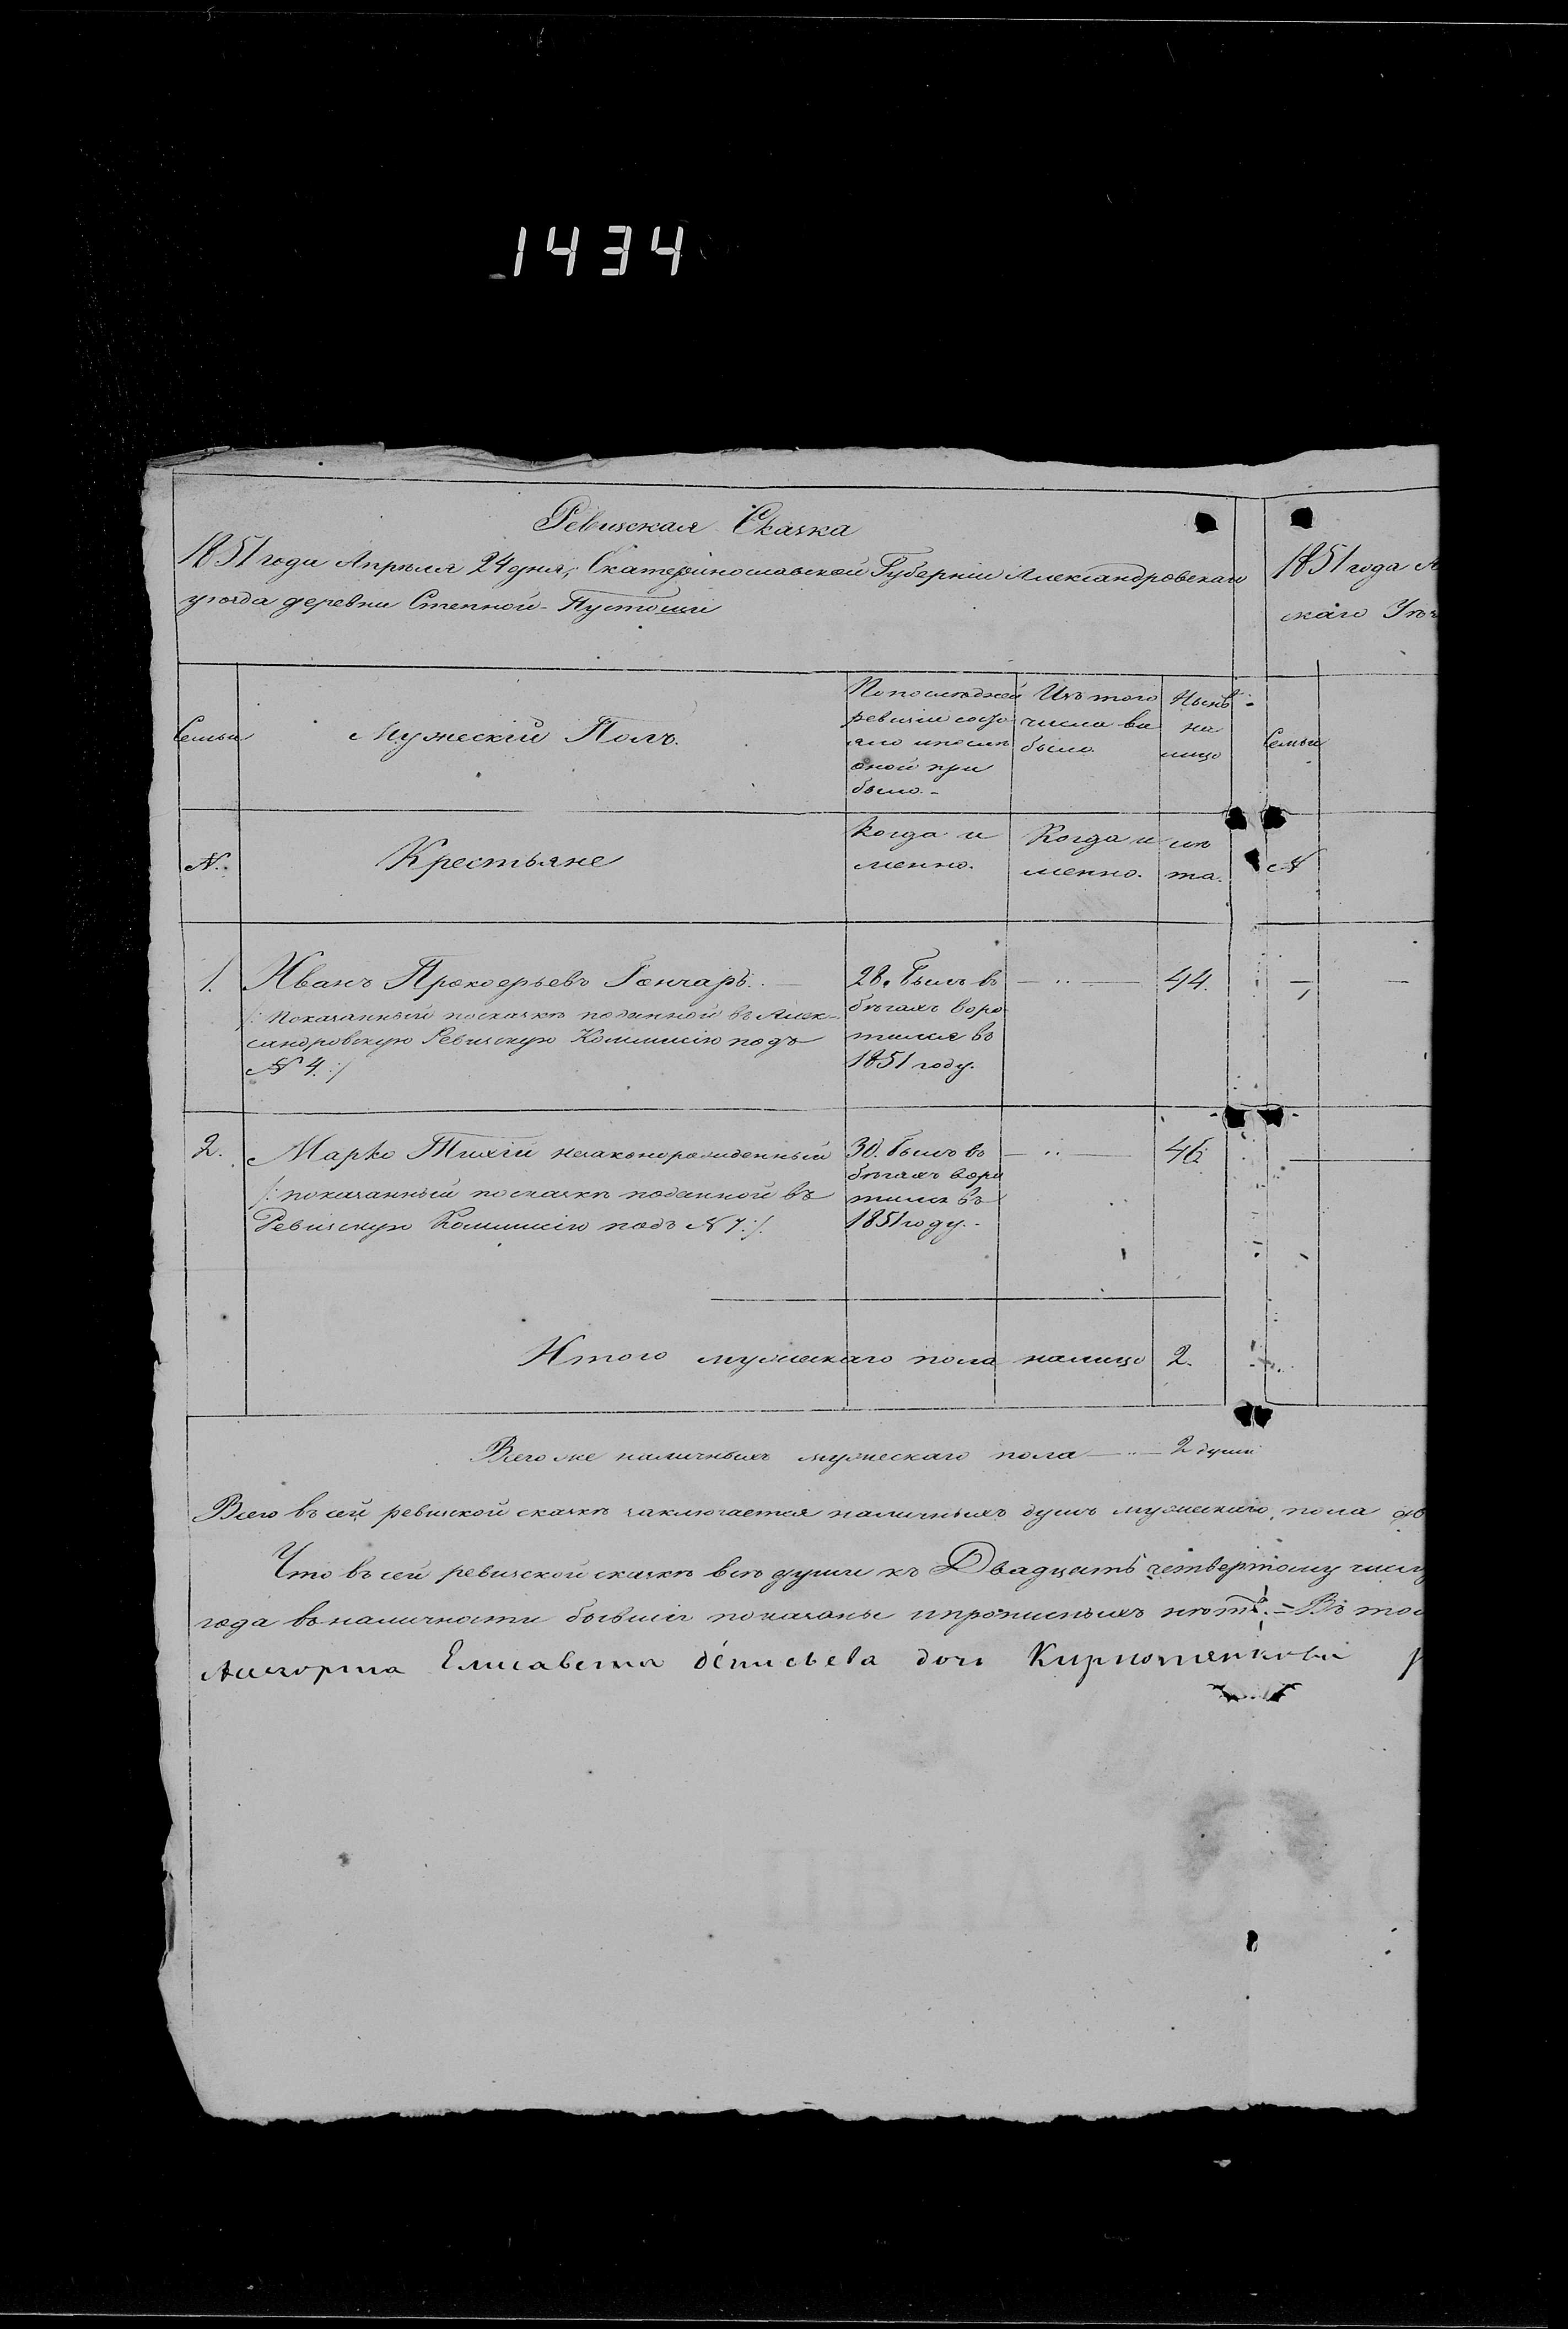 1434
Ревизская Сказка
1851 года Апреля 24 дня, Екатеринославской Губернiи Александровскаго
уезда деревни Степной-Пустоши
1851 года А
скаго Уез
Семьи
Мужескiй Полъ.
По последней
ревизiи состо
яло и после
оной при
было.-
Изъ того
числа вы
было
Ныне
на
лицо
Семьи
N.
Крестьяне
Когда и
менно.
Когда и
менно.
ле
та.
N
1.
Иванъ Прокофьевъ Гончаръ.
/: показанный по сказке поданной въ Алек-
сандровскую Ревизскую Коммисiю подъ
N 4. :/
28. былъ въ
бегахъ воро
тился въ
1851 году.
44.
2.
Марко Тихiй незаконорожденный
/: показанный по сказке поданной въ
Ревизскую Коммисiю подъ N 7. :/.
30. былъ въ
бегахъ воро
тился въ
1851 году.-
46.
Итого мужескаго пола налицо 2.
Всего же наличныхъ мужескаго пола 2 души
Всего въ сей ревизкой сказке заключается наличныхъ душъ мужескаго пола дв
Что въ сей ревизской сказке все души къ Двадцать четвертому числу
года въ наличности бывшiя показаны и прописныхъ нетъ.= Въ том
Елисавета денисьева дочь